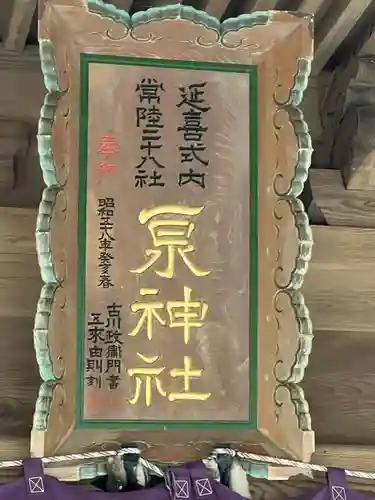 延喜式内
常陸二十八社
泉神社
奉納
昭和五十八年癸亥春
古川政衛門書
五来由則刻